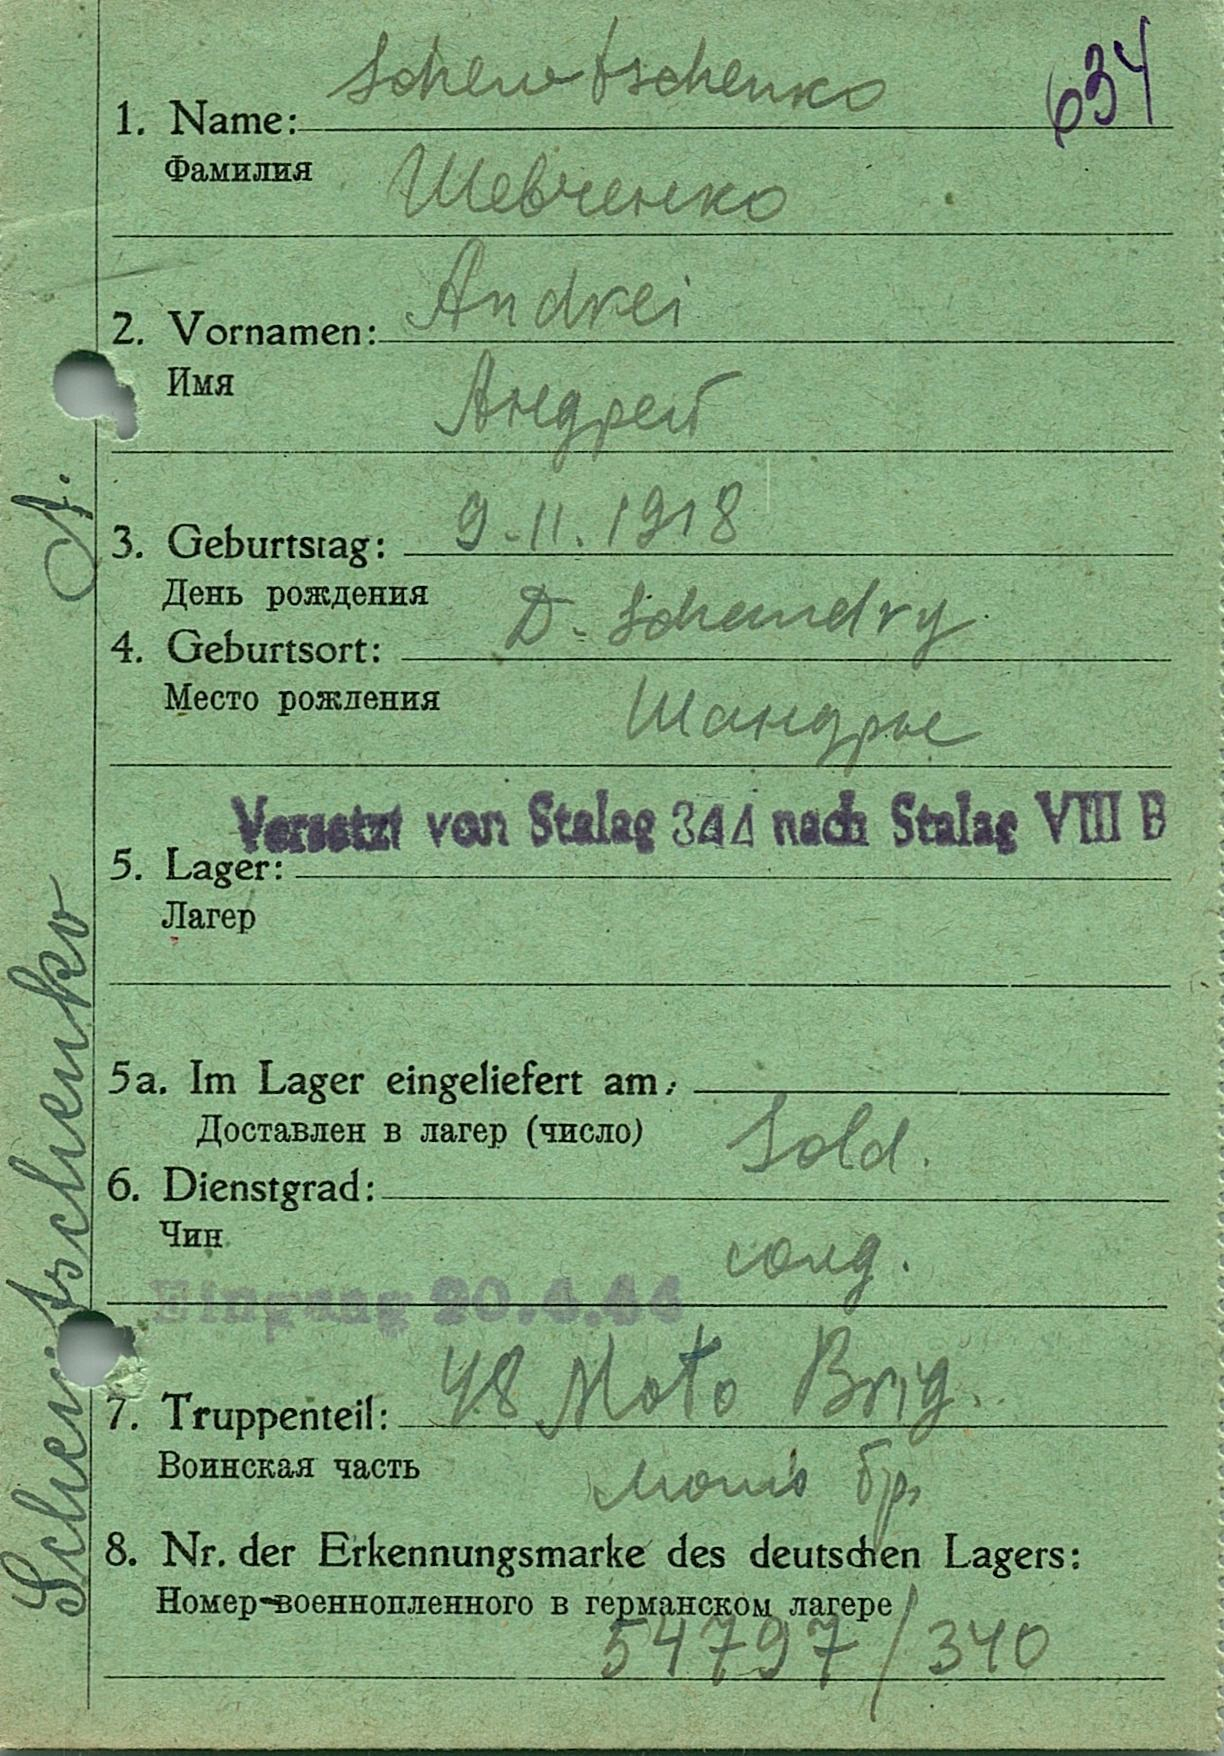 Schewtschenko
634
1. Name:
Фамилия
Шевченко
Andrei
2. Vornamen:
Имя
Андрей
3. Geburtstag: 9.11.1918
День рождения
4. Geburtsort: D. Schandry
Место рождения
Шандры
Versetzt von Stalag 344 nach Stalag VIII B
5. Lager:
Лагер
5a. Im Lager eingeliefert am:
Доставлен в лагер (число)
Sold.
6. Dienstgrad:
Чин
солд.
Eingang 20.4.44
7. Truppenteil: 48 Moto Brig.
Воинская часть
мото бр.
8. Nr. der Erkennungsmarke des deutschen Lagers:
Номер-военнопленного в германском лагере
54797/340
Schewtschenko A.